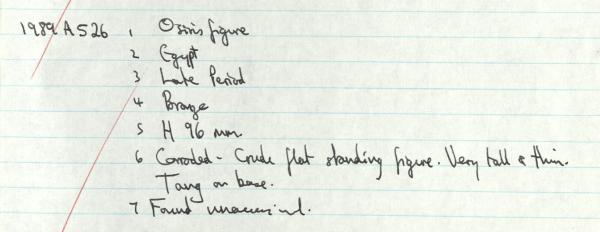 1989 A 526 1 Osiris figure
2 Egypt
3 Late Period
4 Bronze
5 H 96 mm
6 Corroded - Crude flat standing figure. Very tall & thin.
Tang on base.
7 Found unaccessioned.